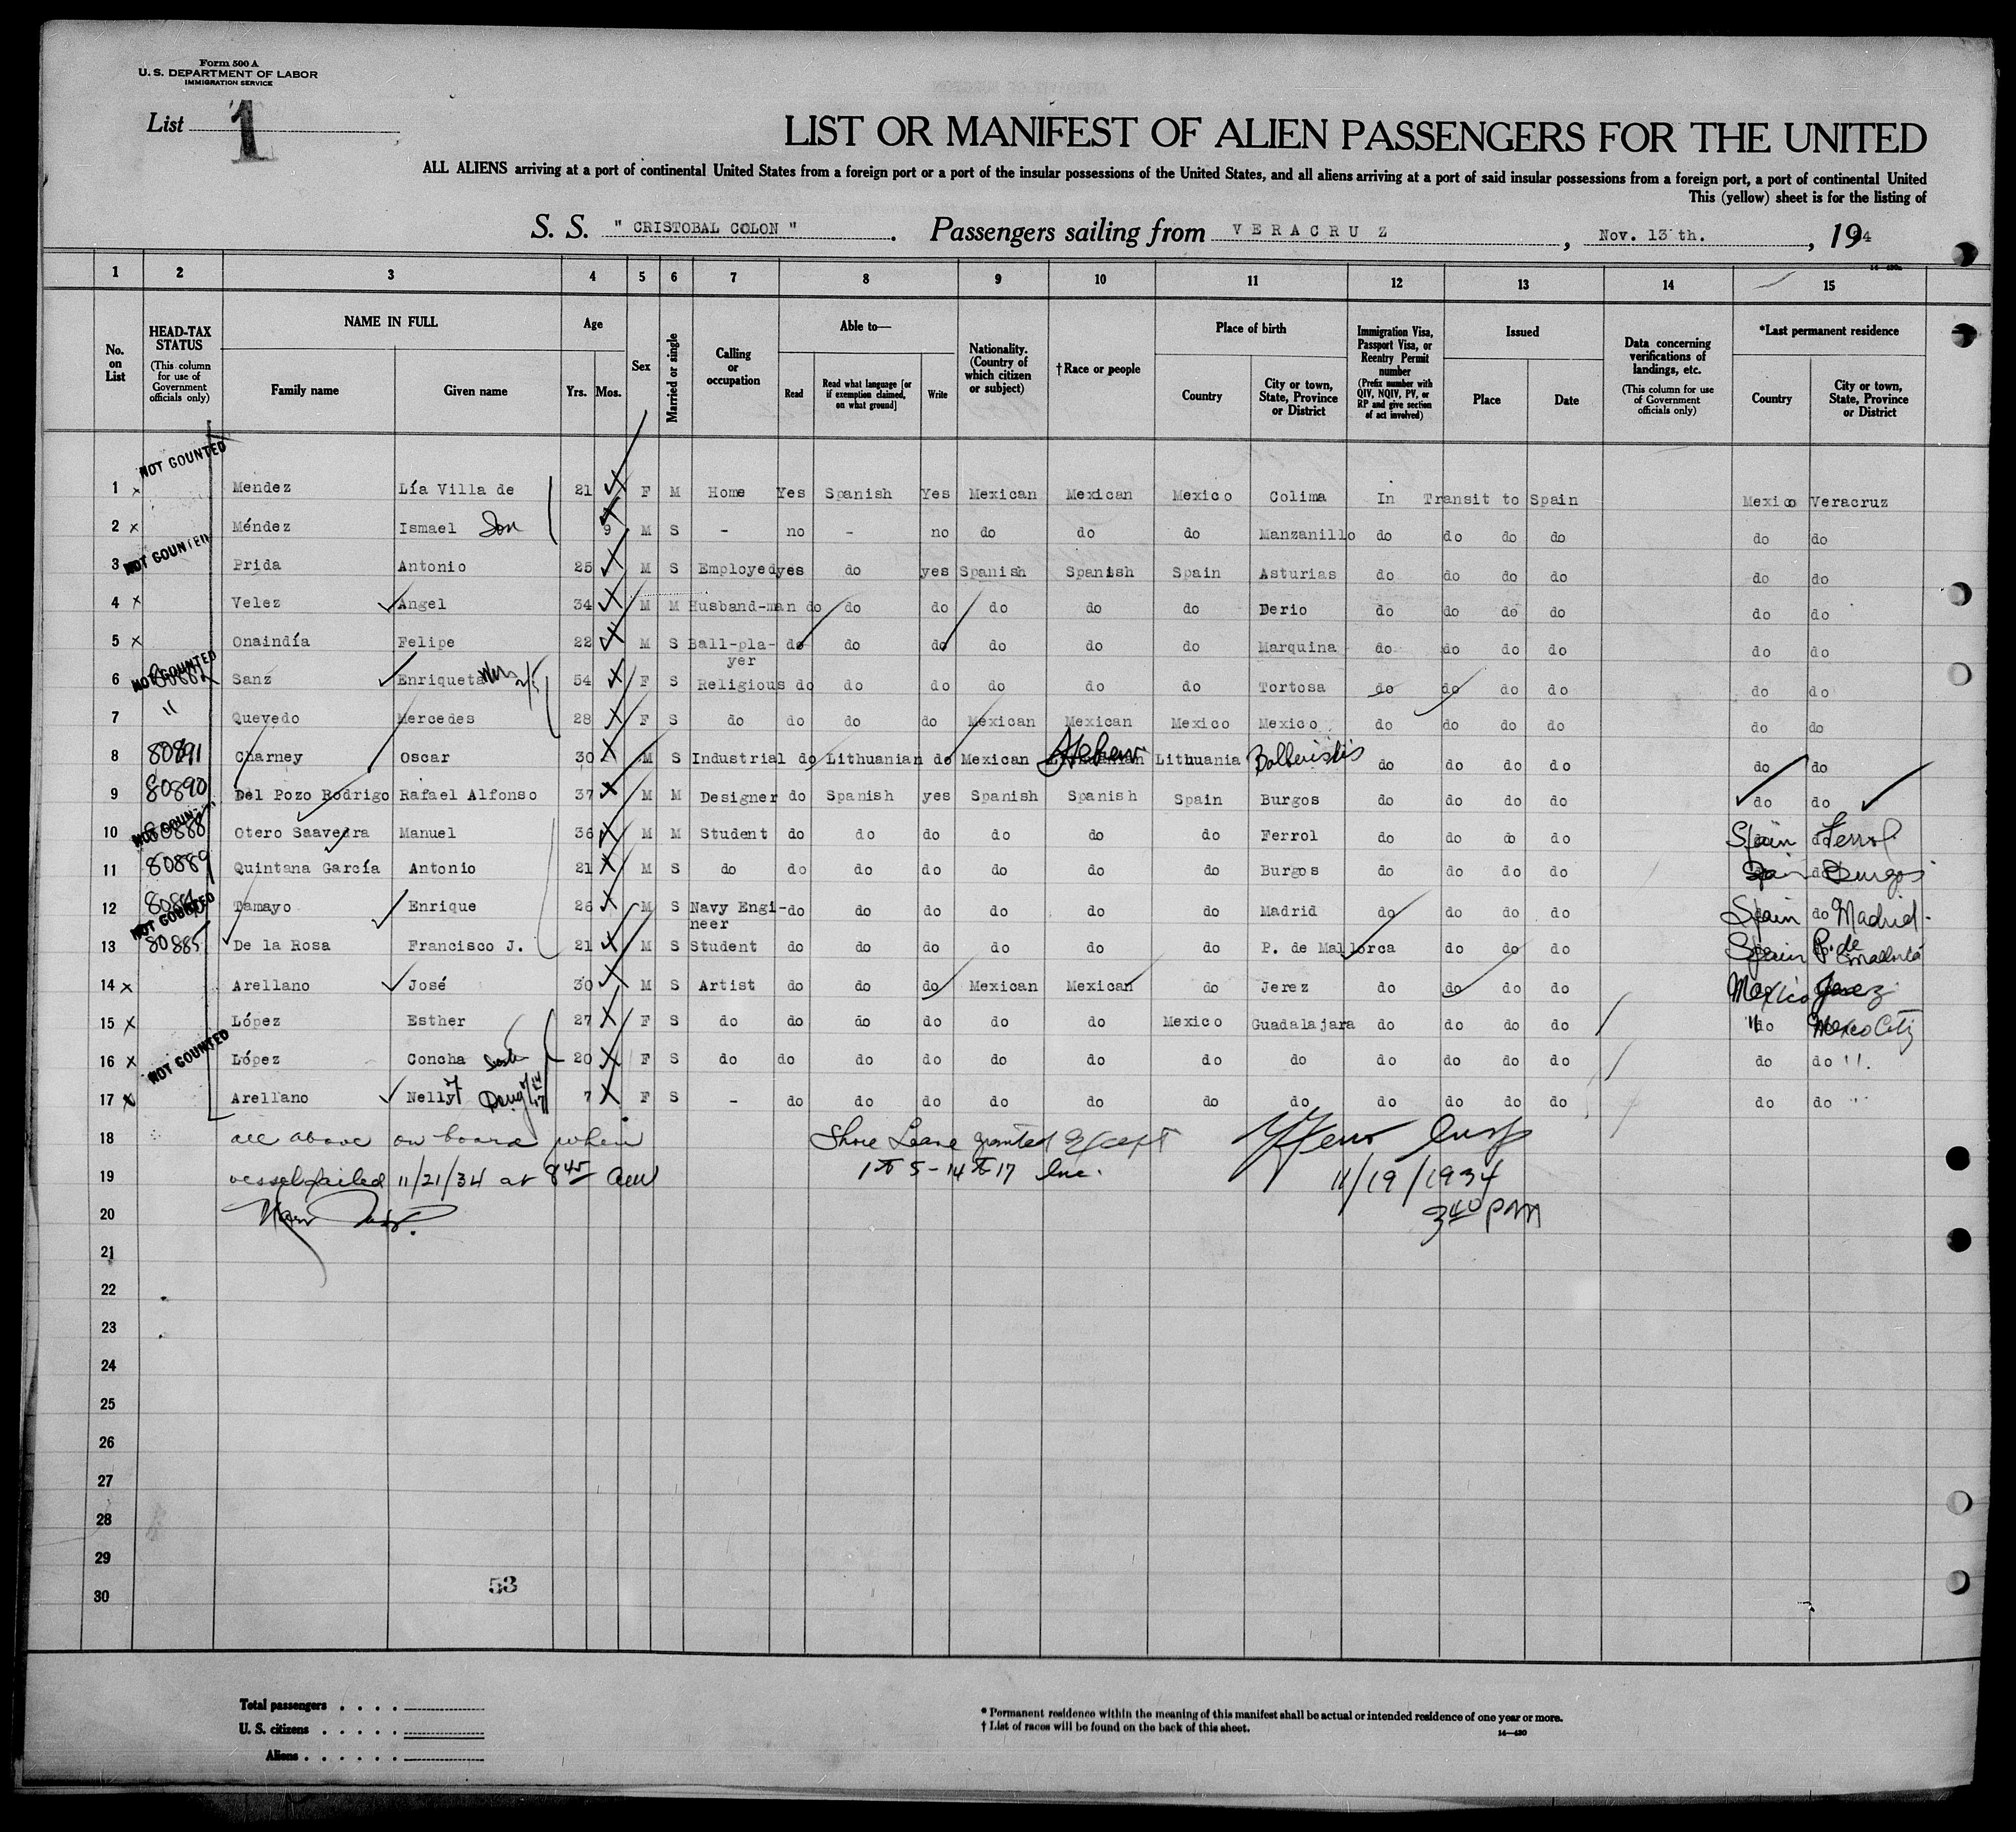 Form 500 A
U. S. DEPARTMENT OF LABOR
IMMIGRATION SERVICE
List 1
LIST OR MANIFEST OF ALIEN PASSENGERS FOR THE UNITED
ALL ALIENS arriving at a port of continental United States from a foreign port or a port of the insular possessions of the United States, and all aliens arriving at a port of said insular possessions from a foreign port, a port of continental United
This (yellow) sheet is for the listing of
S. S. " CRISTOBAL COLON " . Passengers sailing from VERACRUZ , Nov. 13 th. , 1934
1 2 3 4 5 6 7 8 9 10 11 12 13 14 15
No. on List
HEAD-TAX STATUS
(This column for use of Government officials only)
NAME IN FULL
Family name Given name
Age
Yrs. Mos.
Sex
Married or single
Calling or occupation
Able to—
Read
Read what language [or if exemption claimed, on what ground]
Write
Nationality. (Country of which citizen or subject)
†Race or people
Place of birth
Country
City or town, State, Province or District
Immigration Visa, Passport Visa, or Reentry Permit number
(Prefix number with QIV, NQIV, PV, or RP and give section of act involved)
Issued
Place Date
Data concerning verifications of landings, etc.
(This column for use of Government officials only)
*Last permanent residence
Country
City or town, State, Province or District
NOT COUNTED
1 x Mendez Lía Villa de 21 F M Home Yes Spanish Yes Mexican Mexican Mexico Colima In Transit to Spain Mexico Veracruz
2 x Méndez Ismael Son 9 M S - no - no do do do Manzanillo do do do do do do
NOT COUNTED
3 Prida Antonio 25 M S Employed yes do yes Spanish Spanish Spain Asturias do do do do do do
4 x Velez Angel 34 M M Husband-man do do do do do do Derio do do do do do do
5 x Onaindía Felipe 22 M S Ball-pla-yer do do do do do do Marquina do do do do do do
NOT COUNTED
6 Sanz Enriqueta 54 F S Religious do do do do do do Tortosa do do do do do do
7 " Quevedo Mercedes 28 F S do do do do Mexican Mexican Mexico Mexico do do do do do do
8 80891 Charney Oscar 30 M S Industrial do Lithuanian do Mexican Hebrew Lithuania do do do do do do
9 80890 Del Pozo Rodrigo Rafael Alfonso 37 M M Designer do Spanish yes Spanish Spanish Spain Burgos do do do do do do
NOT COUNTED
10 80888 Otero Saavedra Manuel 36 M M Student do do do do do do Ferrol do do do do Spain Ferrol
11 80889 Quintana García Antonio 21 M S do do do do do do do Burgos do do do do Spain Burgos
12 Tamayo Enrique 26 M S Navy Engi-neer do do do do do do Madrid do do do do Spain do Madrid
NOT COUNTED
13 80885 De la Rosa Francisco J. 21 M S Student do do do do do do P. de Mallorca do do do Spain P. de Mallorca
14 x Arellano José 30 M S Artist do do do Mexican Mexican do Jerez do do do do Mexico Jerez
15 x López Esther 27 F S do do do do do do Mexico Guadalajara do do do do " do Mexico City
NOT COUNTED
16 x López Concha 20 F S do do do do do do do do do do do do do do "
17 x Arellano Nelly 7 F S - do do do do do do do do do do do do do "
18 all above on board when Shore Leave granted except
19 vessel sailed 11/21/34 at 8 45 am 1 to 5 - 14 to 17 Inc. 11/19/1934
20 3 40 PM
21
22
23
24
25
26
27
28
29
30
53
Total passengers . . . .
U. S. citizens . . . . .
Aliens . . . . . .
* Permanent residence within the meaning of this manifest shall be actual or intended residence of one year or more.
† List of races will be found on the back of this sheet.
14—430